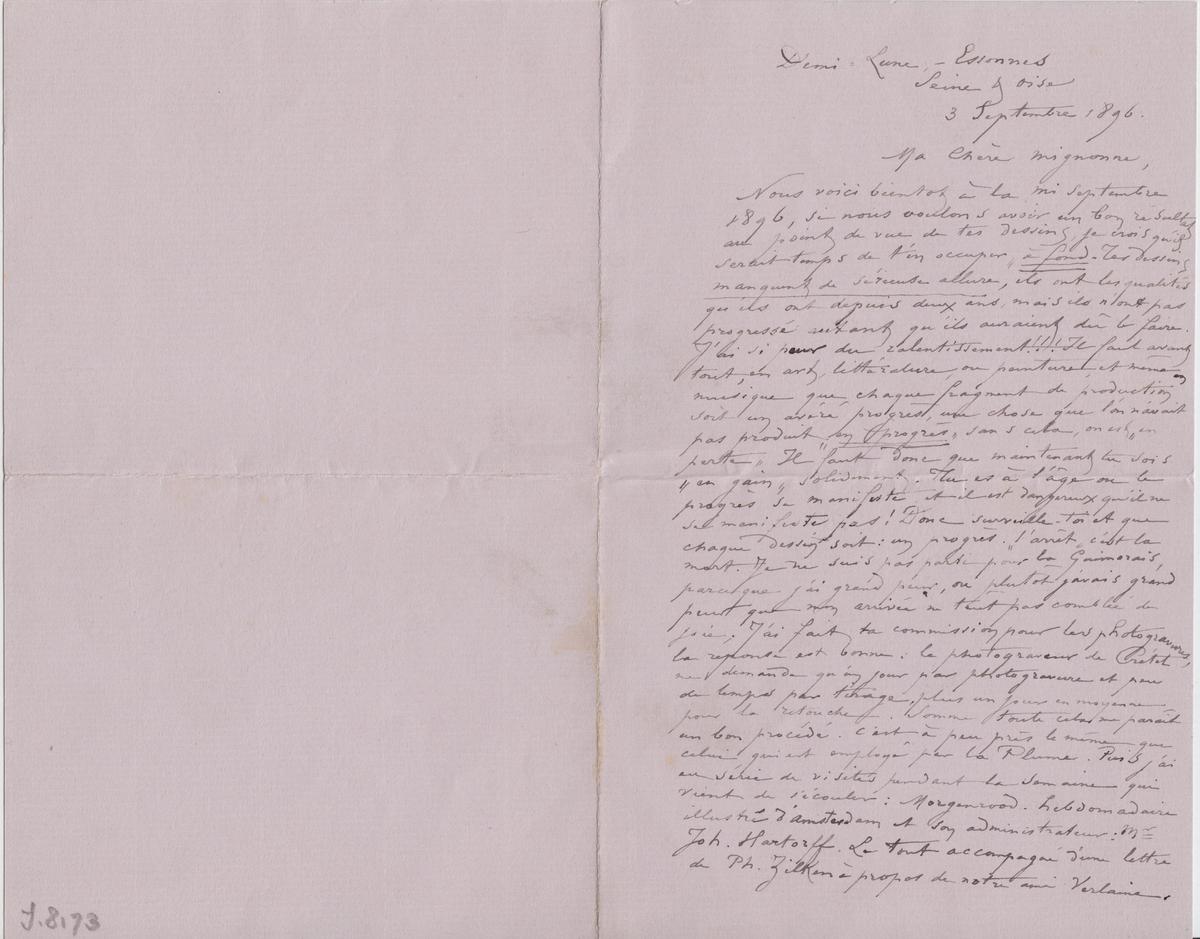 Demi-Lune, - Essonnes
Seine & Oise
3 Septembre 1896.
Ma Chère mignonne,
Nous voici bientôt à la mi septembre
1896, si nous voulons avoir un bon résultat
au point de vue de tes dessins, je crois qu'il
serait temps de t'en occuper "à fond". Tes dessins
manquent de sérieuse allure, ils ont les qualités
qu'ils ont depuis deux ans, mais ils n'ont pas
progressé autant qu'ils auraient dû le faire.
J'ai si peur du ralentissement!!! Il faut avant
tout, en art, littérature, ou peinture, et même en
musique que chaque fragment de production
soit un avéré progrès, une chose que l'on n'avait
pas produit "en progrès", sans cela, on est "en
perte". Il faut donc que maintenant tu sois
"en gain" solidement. Tu es à l'âge ou le
progrès se manifeste et il est dangereux qu'il ne
se manifeste pas! Donc surveille-toi et que
chaque dessin soit: un progrès. "l'arrêt" c'est la
mort. Je ne suis pas parti pour la Guimorais,
parceque j'ai grand peur, ou plutôt j'avais grand
peur que mon arrivée ne t'eût pas comblée de
joie. J'ai fait ta commission pour les photogravures,
la réponse est bonne: le photograveur de Crétet
ne demande qu'un jour par photogravure et peu
de temps par tirage, plus un jour en moyenne
pour la retouche. Somme toute cela me paraît
un bon procédé. c'est à peu près le même que
celui qui est employé par la Plume. Puis j'ai
eu série de visites pendant la semaine qui
vient de s'écouler: Morgenrood. hebdomadaire
illustré d'amsterdam et son administrateur: Mr
Joh. Hartorff. Le tout accompagné d'une lettre
de Ph. Zilken à propos de notre ami Verlaine.
J.8,73